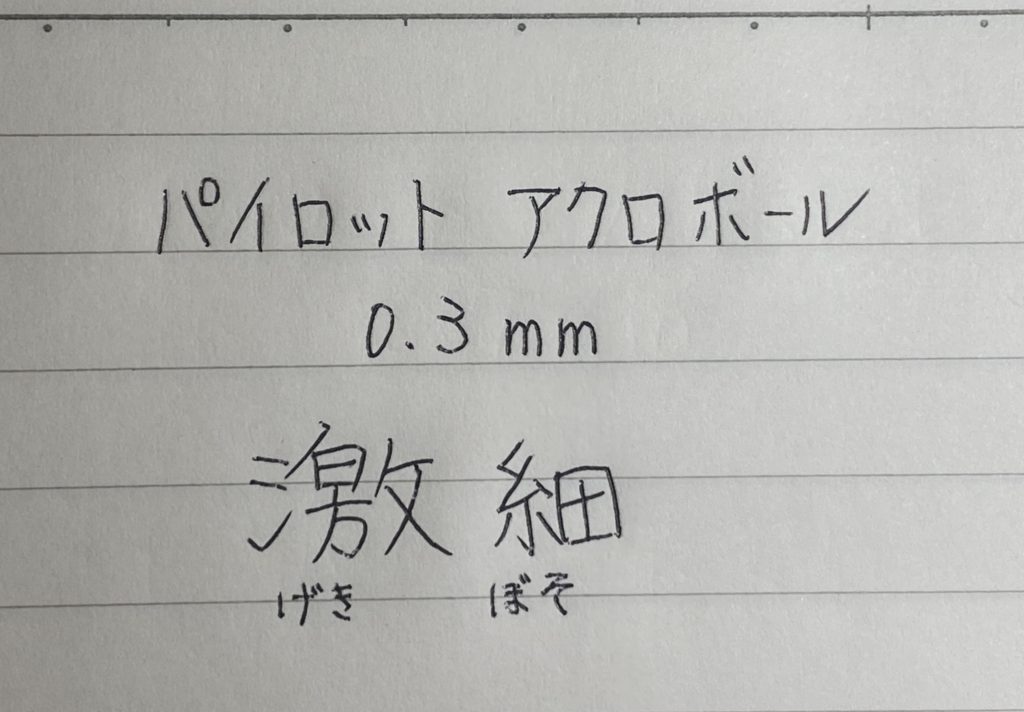 パイロット アクロボール
0.3 mm
激細
げき ぼそ